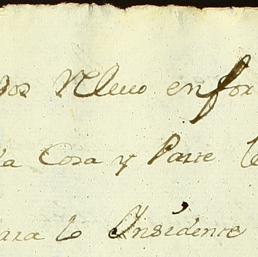 dos Vlleuo en for
la Cosa y Parte le
para lo Insidente